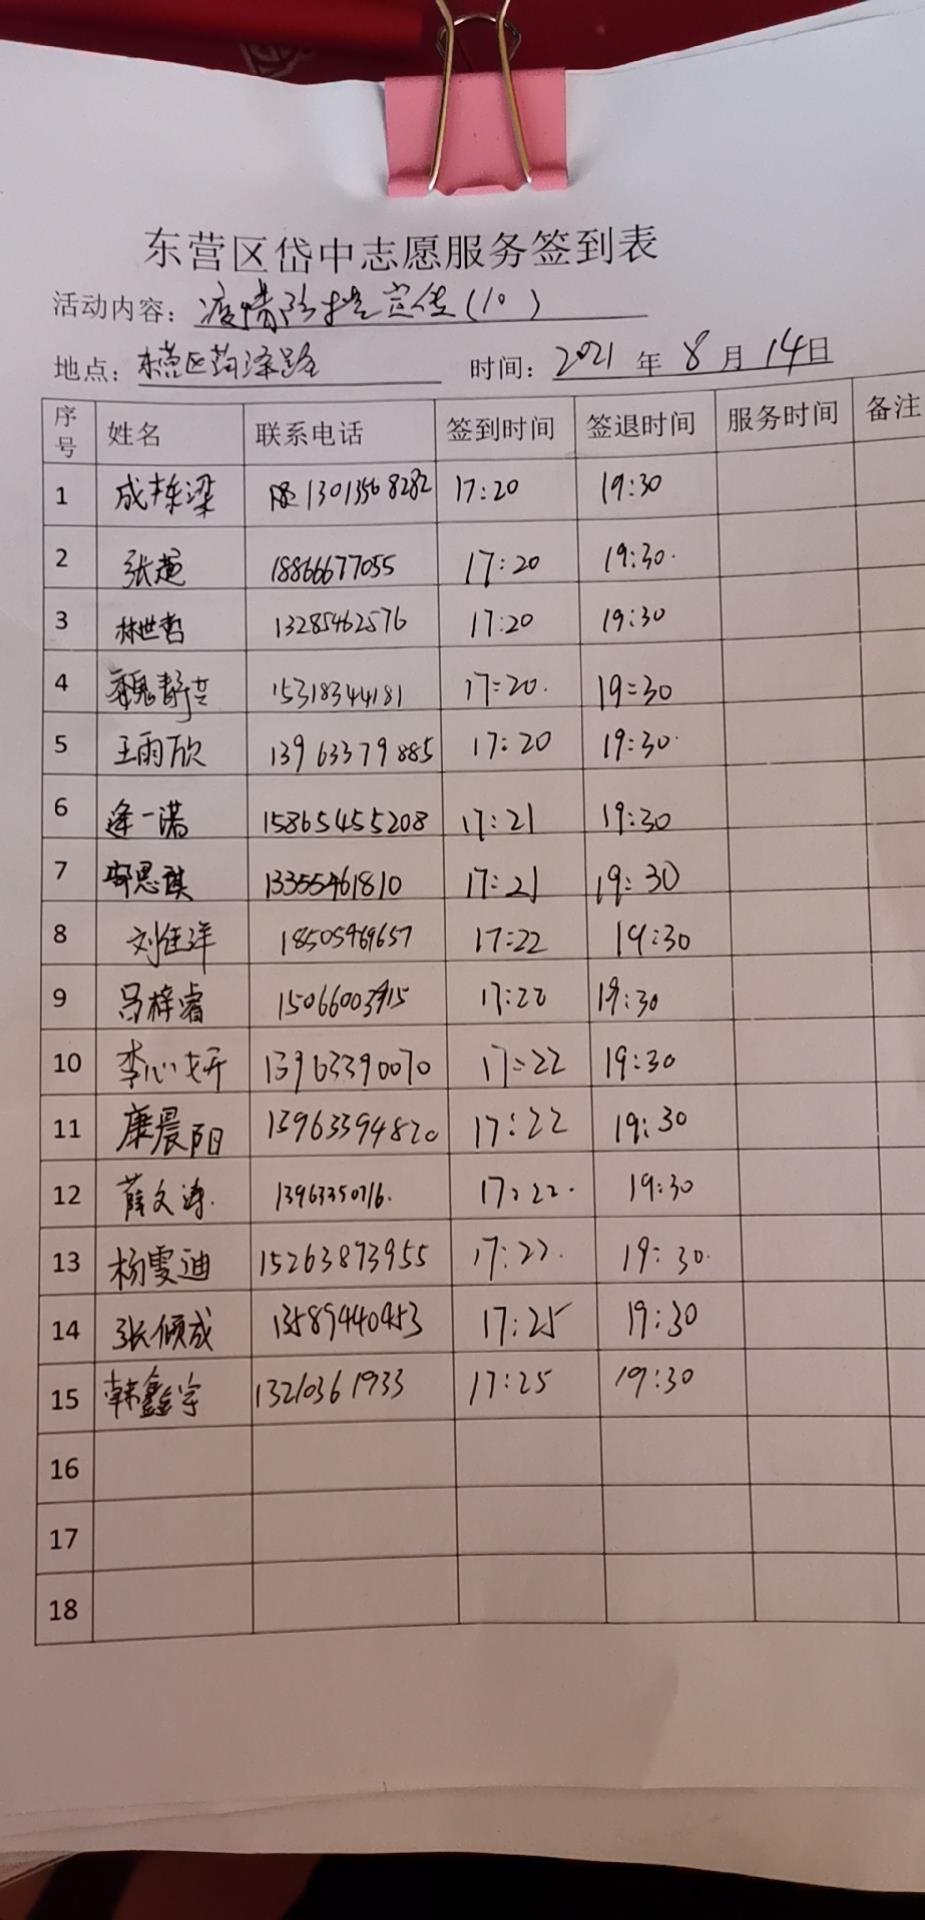 东营区岱中志愿服务签到表
活动内容：疫情防控宣传（10）
地点：东营区菏泽路 时间：2021年8月14日
序号 姓名 联系电话 签到时间 签退时间 服务时间 备注
1 成栋梁 13013568282 17:20 19:30
2 张超 18866677055 17:20 19:30.
3 林世哲 13285462576 17:20 19:30
4 15318344181 17:20. 19:30
5 王雨欣 13963379885 17:20 19:30.
6 逄一诺 15865455208 17:21 19:30
7 13355461810 17:21 19:30
8 刘佳洋 18505969657 17:22 19:30
9 吕梓睿 15066003915 17:22 19:30
10 李心妍 13963390070 17:22 19:30
11 康晨阳 13963394820 17:22 19:30
12 薛文涛. 13963350716. 17:22. 19:30
13 杨雯迪 15263873955 17:22. 19:30.
14 张倾成 13589440953 17:25 19:30
15 韩鑫宇 13210361933 17:25 19:30
16
17
18